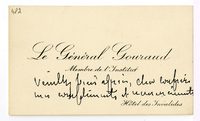 482
Le Général Gouraud
Membre de l'Institut
veuillez bien agréer, cher confrère
mes compliments et remerciements
Hôtel des Invalides